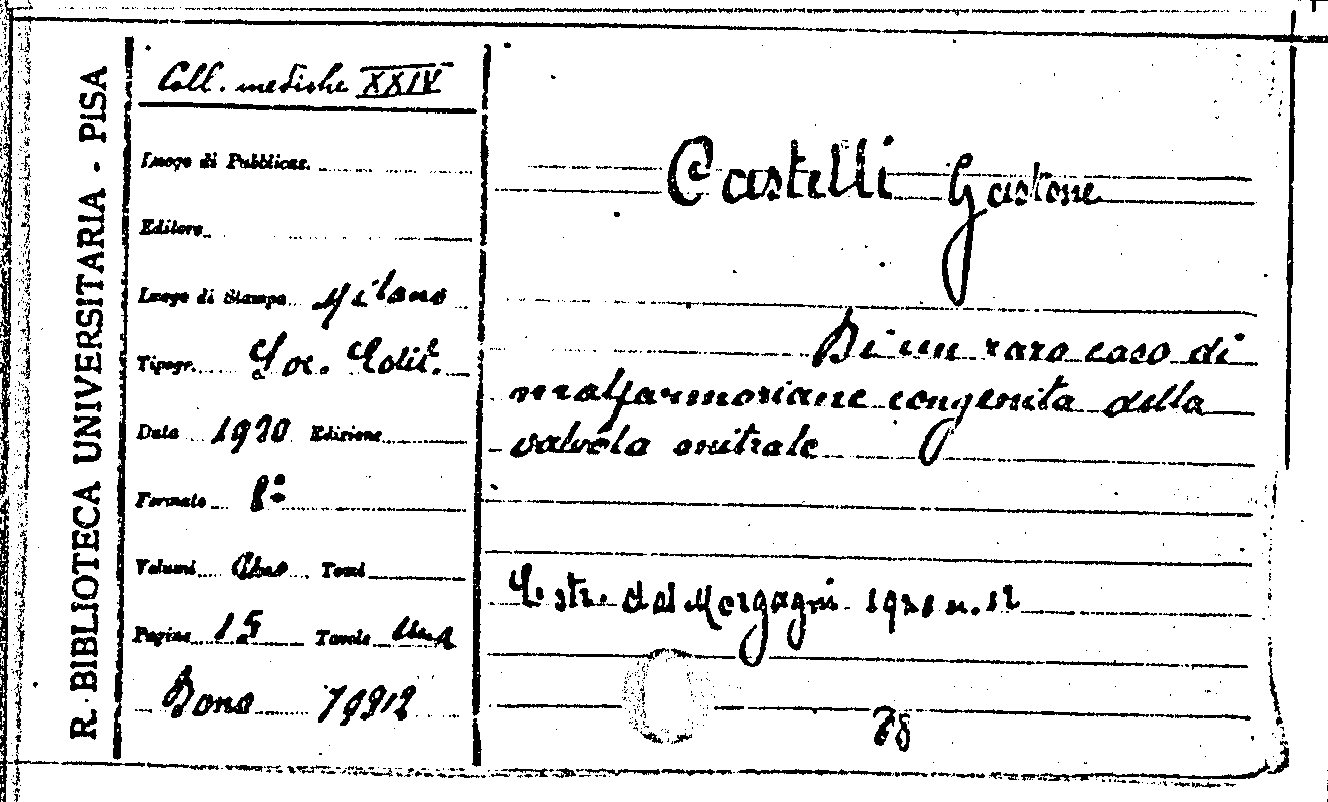 R. BIBLIOTECA UNIVERSITARIA - PISA
Coll. mediche XXIV
Luogo di Pubblicaz.
Editore
Luogo di Stampa Milano
Tipogr. Soc. Edit.
Data 1920 Edizione
Formato 8º
Volumi Uno Tomi
Pagine 15 Tavole Una
Dono 79912
Castelli Gastone
Di un raro caso di
malformazione congenita della
valvola mitrale
Estr. dal Morgagni 1920 n. 12